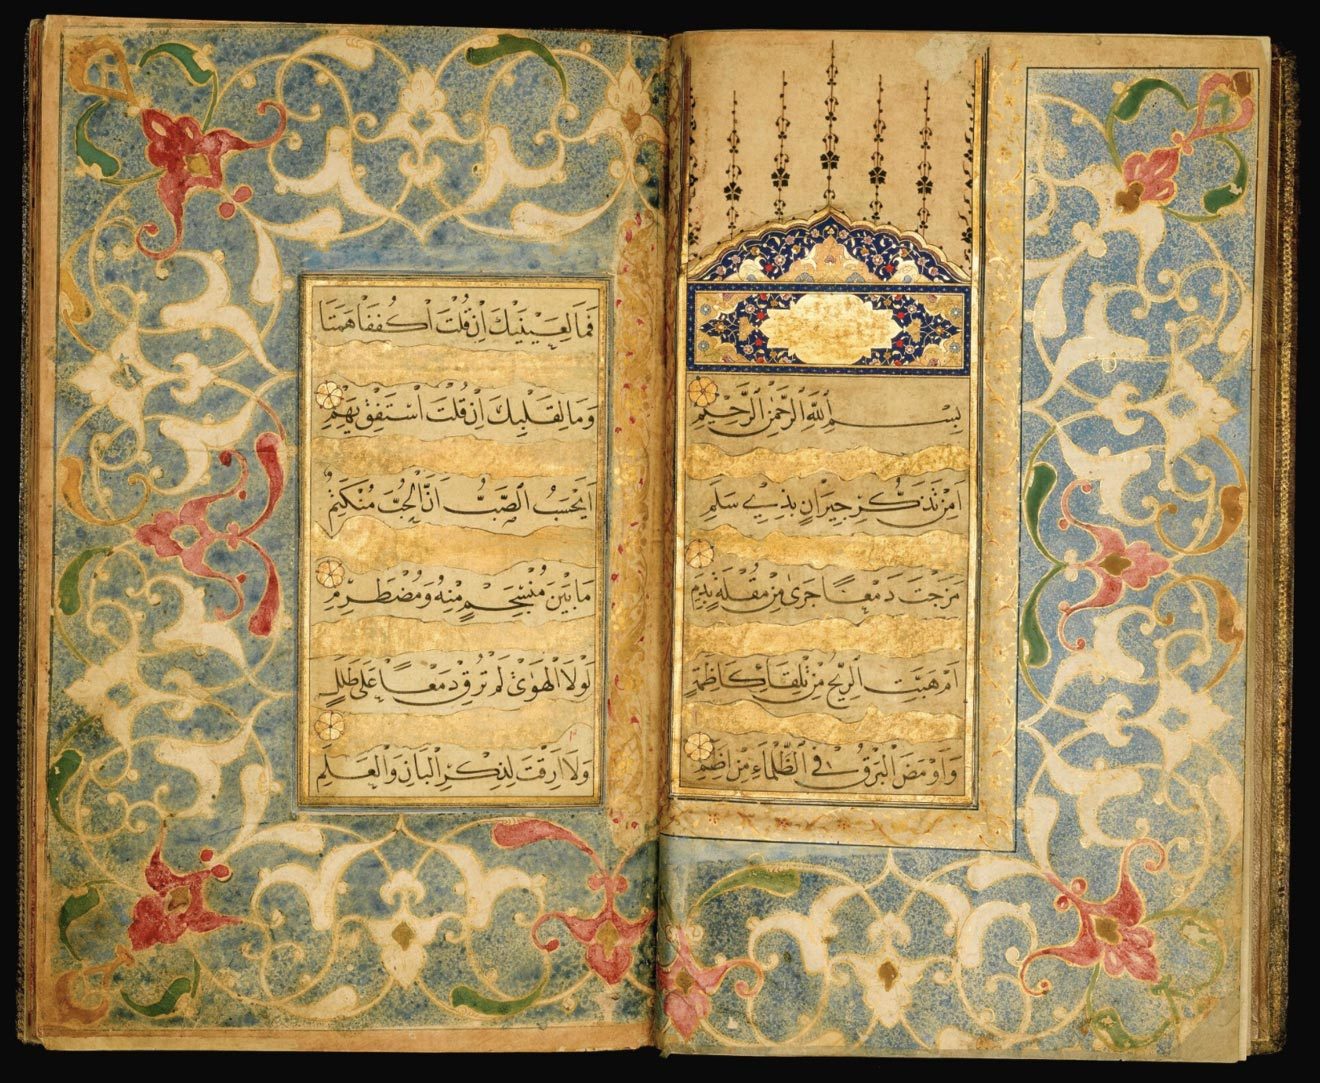 بِسْمِ اللَّهِ الرَّحْمٰنِ الرَّحِيمِ
اَمِنْ تَذَكُّرِ جِيرَانٍ بِذِي سَلَمِ
مَزَجْتَ دَمْعًا جَرٰى مِنْ مُقْلَةٍ بِدَمِ
اَمْ هَبَّتِ الرِّيحُ مِنْ تِلْقَاءِ كَاظِمَةٍ
وَاَوْمَضَ الْبَرْقُ فِي الظَّلْمَاءِ مِنْ اِضَمِ
فَمَا لِعَيْنَيْكَ اِنْ قُلْتَ اكْفُفَا هَمَتَا
وَمَا لِقَلْبِكَ اِنْ قُلْتَ اسْتَفِقْ يَهِمِ
اَيَحْسَبُ الصَّبُّ اَنَّ الْحُبَّ مُنْكَتِمٌ
مَا بَيْنَ مُنْسَجِمٍ مِنْهُ وَمُضْطَرِمِ
لَوْلَا الْهَوٰى لَمْ تُرِقْ دَمْعًا عَلٰى طَلَلٍ
وَلَا اَرِقْتَ لِذِكْرِ الْبَانِ وَالْعَلَمِ